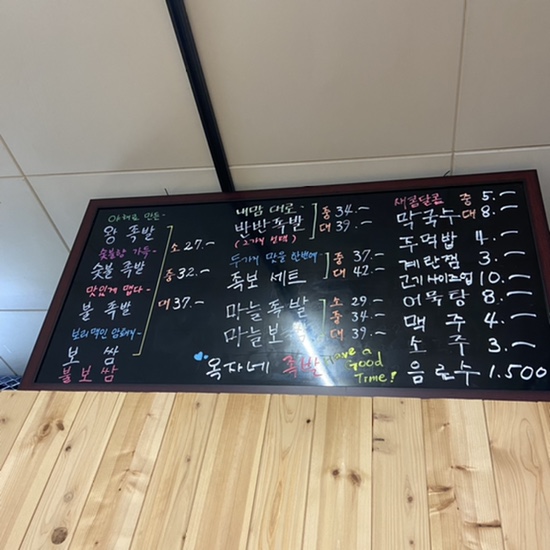 야들야들 만든~
왕 족발
숯불향 가득~
숯불 족발
맛있게 맵다~
불 족발
보 쌈
불보쌈
소 27.-
중 32.-
대 37.-
내맘 대로~
반반족발
(2가지 선택)
중 34.-
대 39.-
두가지 맛을 한번에~
족보 세트
중 37.-
대 42.-
마늘족발
마늘보쌈
소 29-
중 34.-
대 39.-
옥자네 족발
Have a
Good
Time!
새콤달콤
막국수
중 5.-
대 8.-
주먹밥 4.-
계란찜 3.-
고기 사이즈업 10.-
어묵탕 8.-
맥 주 4.-
소 주 3.-
음료수 1.500